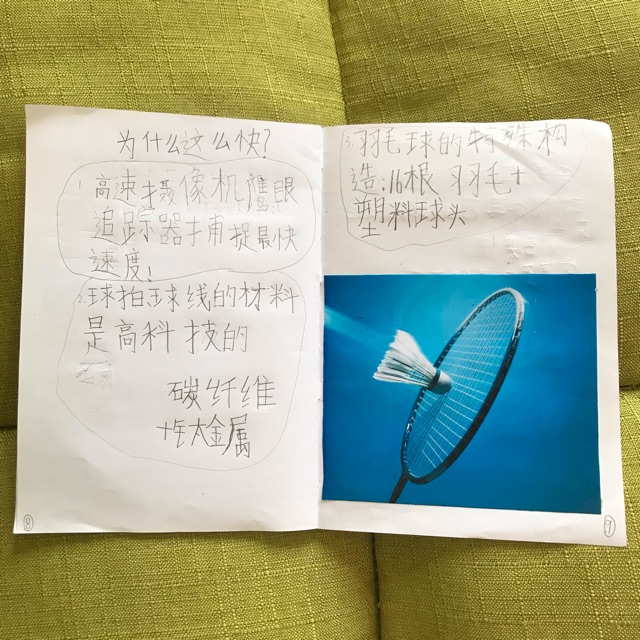 为什么这么快?
1. 高速摄像机鹰眼
追踪器捕捉最快
速度!
2. 球拍球线的材料
是高科技的
碳纤维
+钛金属
8
3. 羽毛球的特殊构
造:16根羽毛+
塑料球头
9